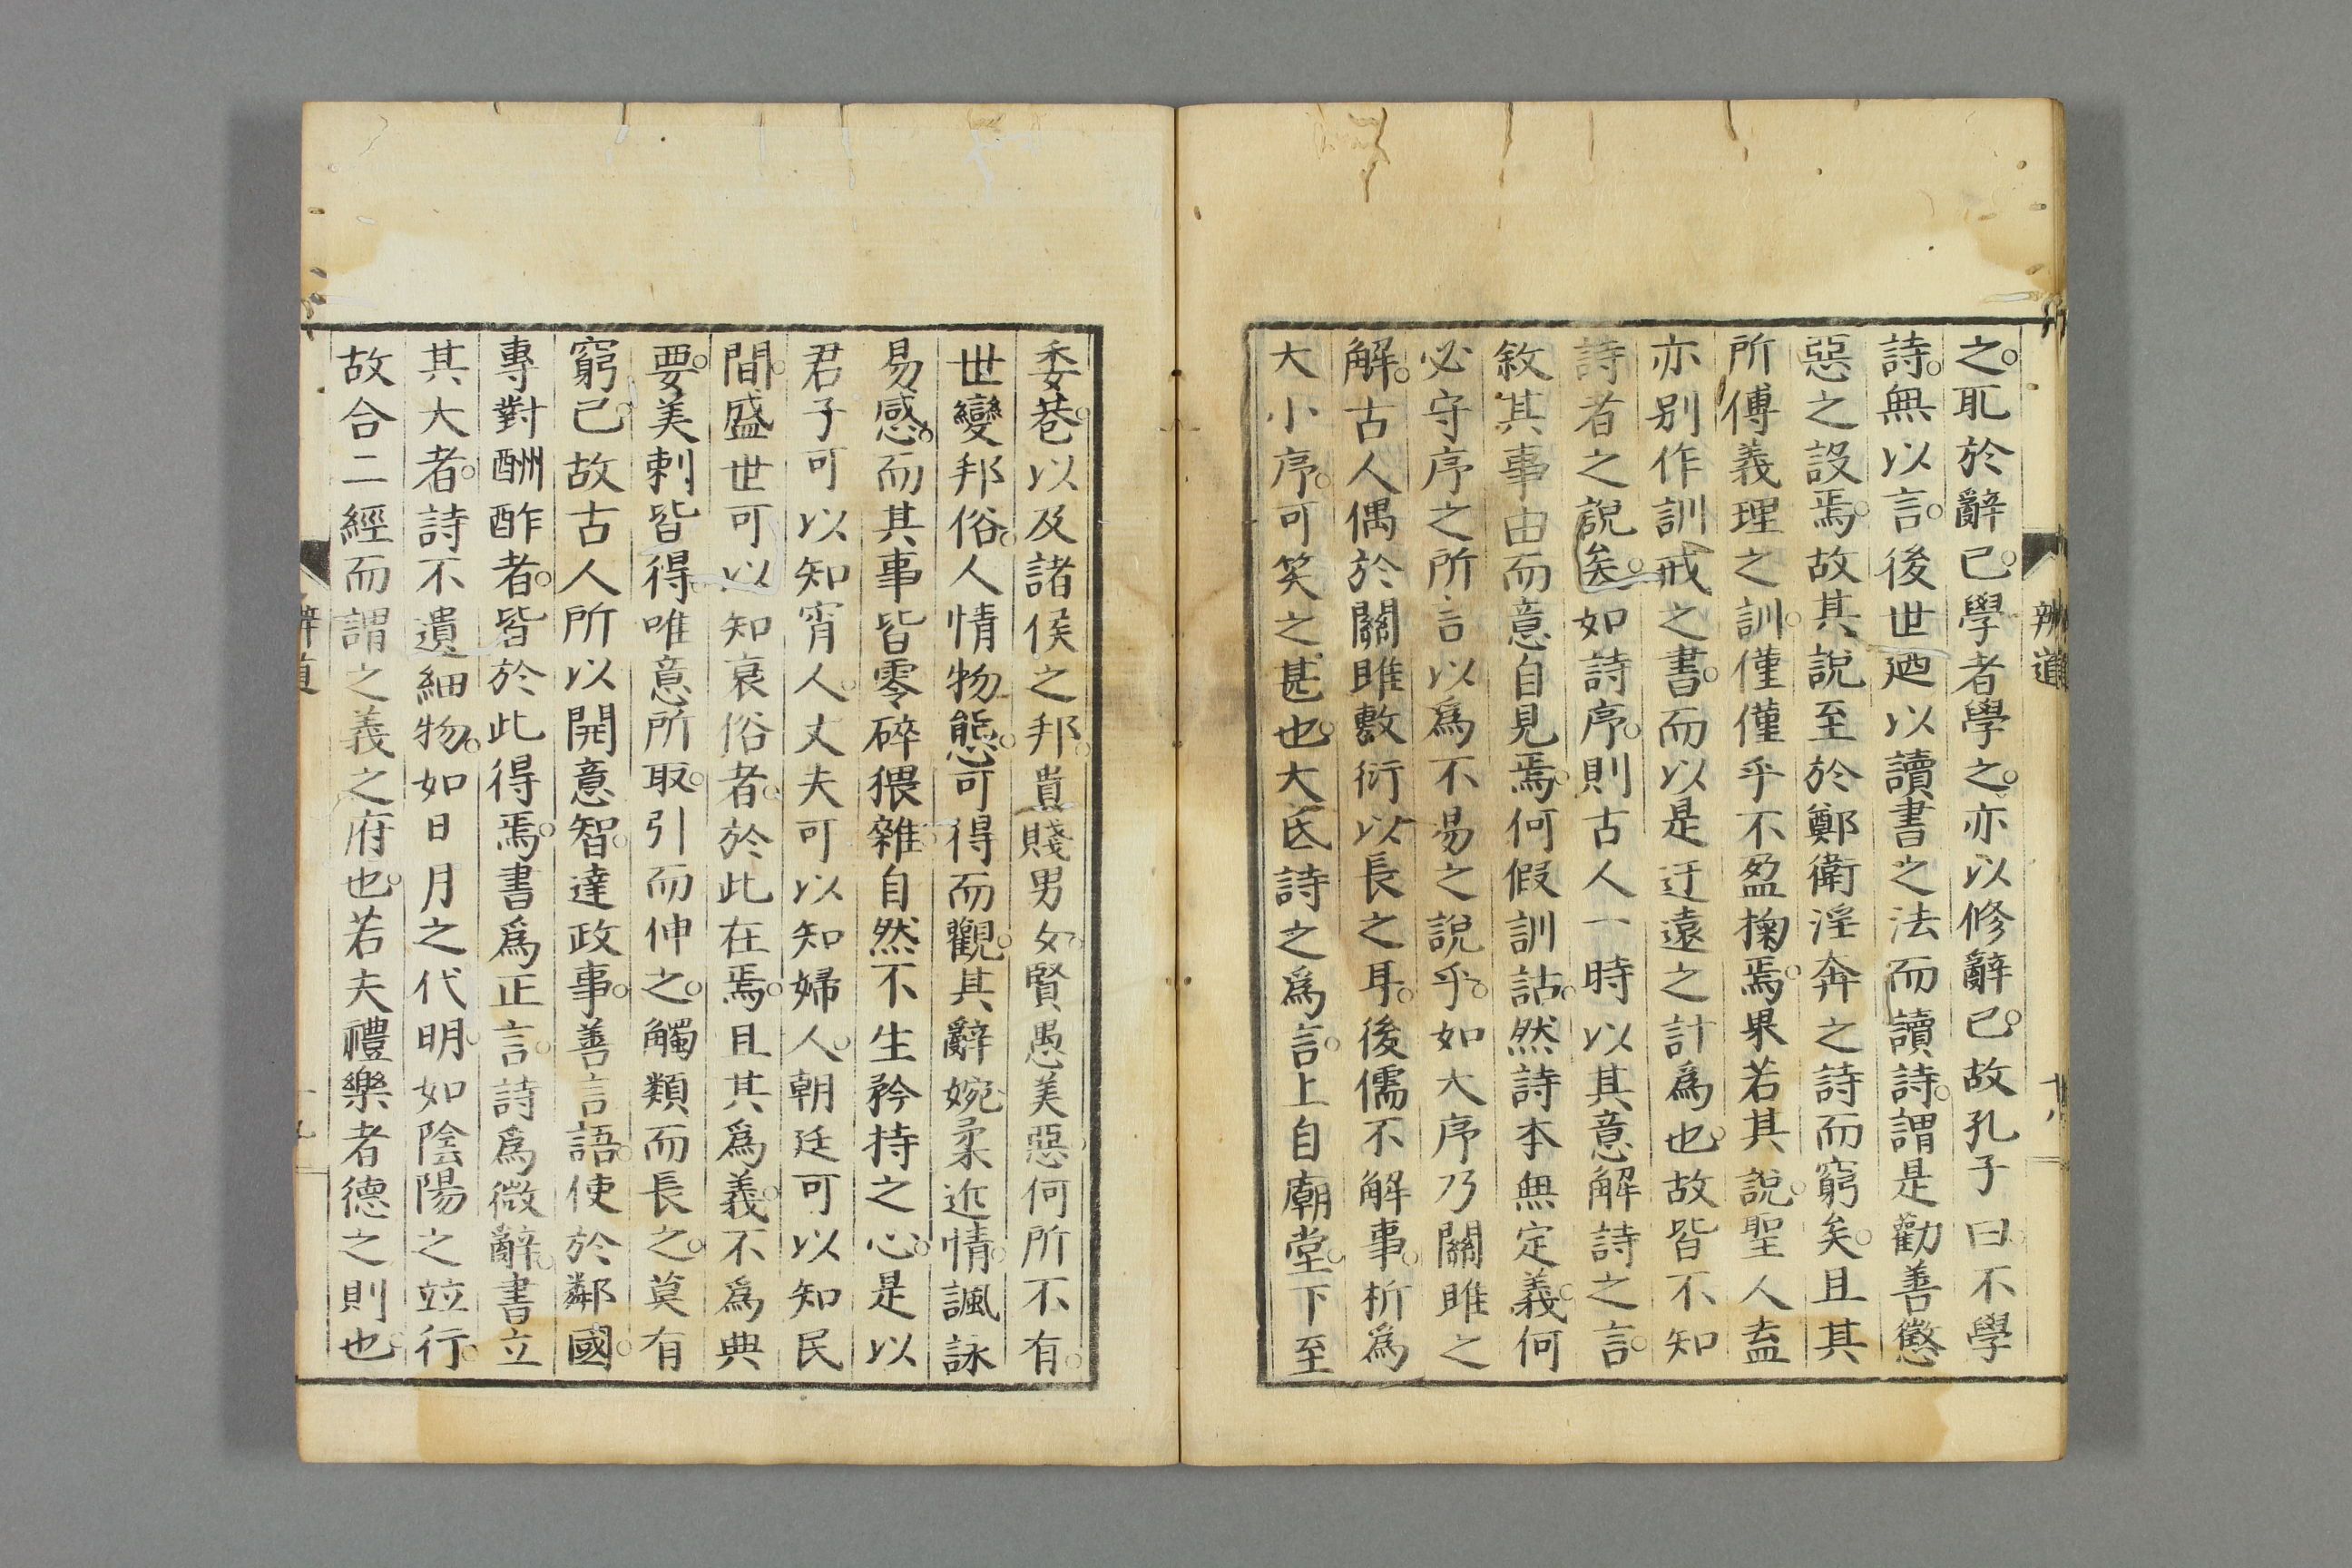 辨道
十八
之。耴於辭已。學者學之。亦以修辭已。故孔子曰。不學
詩。無以言。後世迺以讀書之法而讀詩。謂是勸善懲
惡之設焉。故其說至於鄭衛淫奔之詩而窮矣。且其
所傅義理之訓。僅僅乎不盈掬焉。果若其說。聖人盍
亦别作訓戒之書。而以是迂遠之計爲也。故皆不知
詩者之說矣。如詩序。則古人一時以其意解詩之言。
敘其事由而意自見焉。何假訓詁。然詩本無定義。何
必守序之所言以爲不易之說乎。如大序乃關雎之
解。古人偶於關雎敷衍以長之耳。後儒不解事。析爲
大小序。可笑之甚也。大氐詩之爲言。上自廟堂。下至
委巷。以及諸侯之邦。貴賤男女。賢愚美惡。何所不有。
世變邦俗。人情物態。可得而觀。其辭婉柔近情。諷詠
易感。而其事皆零碎猥雜。自然不生矜持之心。是以
君子可以知宵人。丈夫可以知婦人。朝廷可以知民
間。盛世可以知衰俗者。於此在焉。且其爲義。不爲典
要。美刺皆得。唯意所取。引而伸之。觸類而長之。莫有
窮已。故古人所以開意智。達政事。善言語。使於鄰國。
專對酬酢者。皆於此得焉。書爲正言。詩爲微辭。書立
其大者。詩不遺細物。如日月之代明。如陰陽之竝行。
故合二經而謂之義之府也。若夫禮樂者德之則也。
辨道
十九